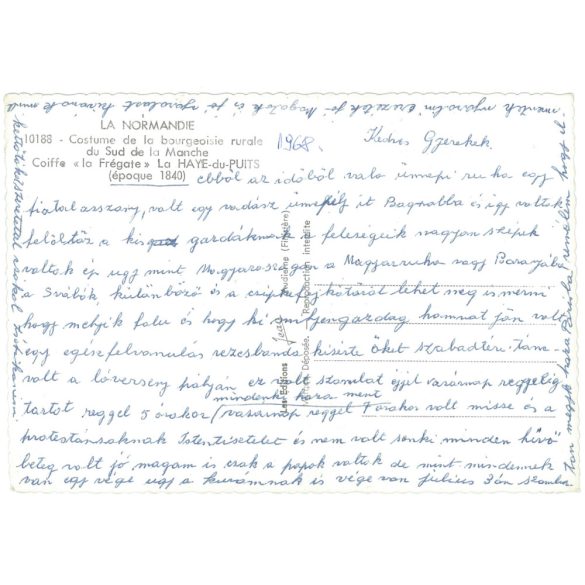 LA NORMANDIE
10188 - Costume de la bourgeoisie rurale
du Sud de la Manche
Coiffe « la Frégate » La HAYE-du-PUITS
(époque 1840)
1968.
Kedves Gyerekek.
ebből az időből való ünnepi ruha egy
fiatal asszony, volt egy vadász ünnepély it Bagnolba és így voltak
felöltöz a gardák a feleségeik nagyon szépek
voltak ép ugy mint Magyarországon a Magyarruha vagy Baranyába
a Svábok különböző és a csipke főkötőről lehet meg ismerni
hogy melyik falu és hogy ki gazdag honnat jön volt
egy egész felvonulas rezesbanda kisérte őket szabadtéri tánc
volt a lóverseny pályán ez volt szombat éjjel vasárnap reggelig
tartot reggel 5 orakor / vasárnap reggel orakor volt misse és a
mindenki haza ment
protestánsaknak Istentisztelet és nem volt senki minden hivő
beteg volt jó magam is csak a papok voltak de mint mindennek
van egy vége ugy a kuramnak is vége van julius 3án szomba
ton megyk haza Párisba, remélem hogy el
mentek nyaralni érezétek jó magatok és jó nyaralast kivánok mind
Les Editions
Reproduction interdite